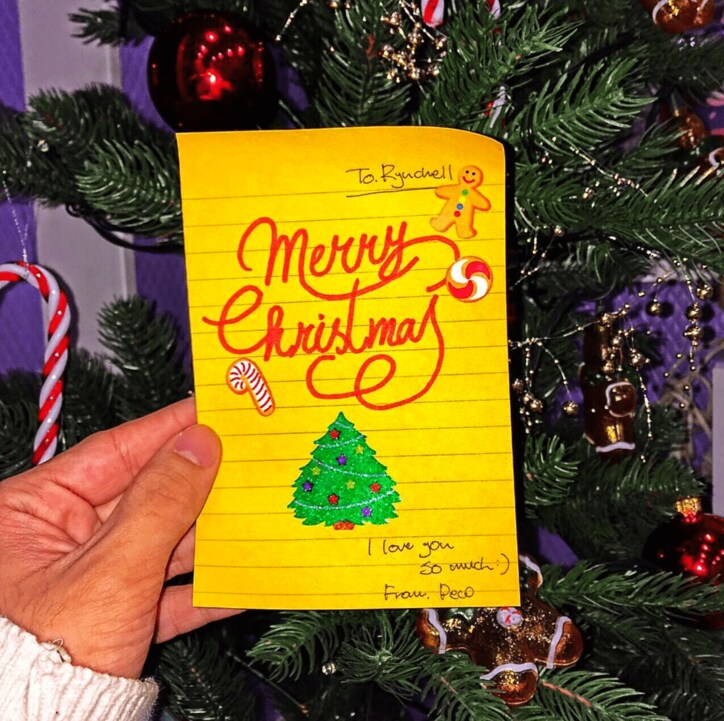 To. Rynchell
Merry
Christmas
I love you
so much :)
From. Deco